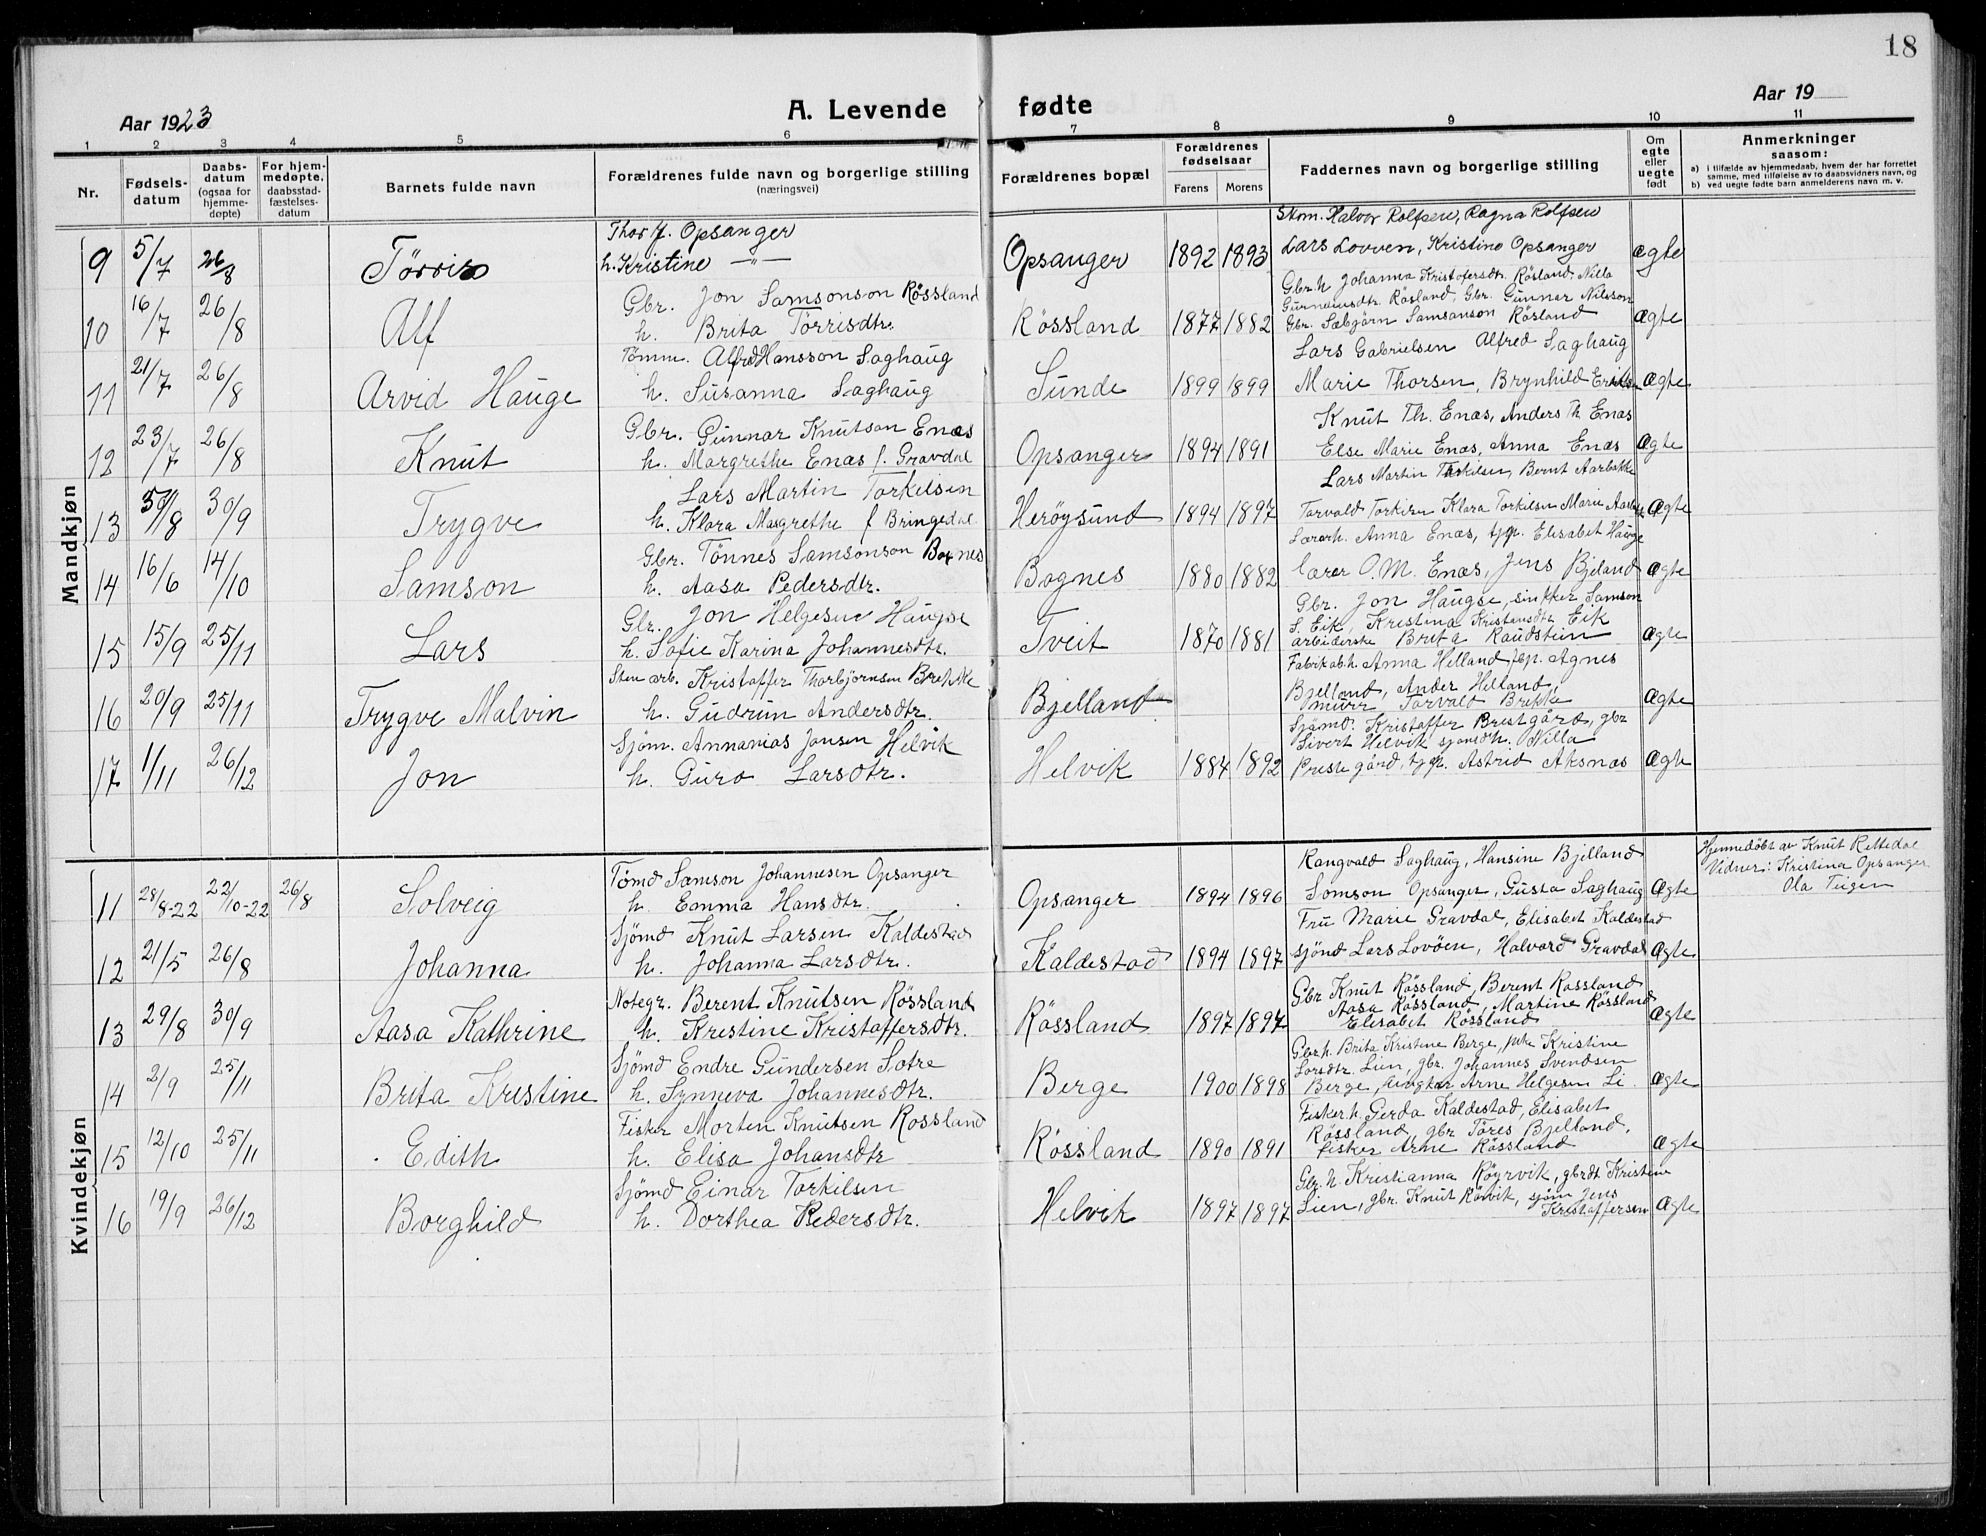 18
Aar 1923
A. Levende fødte
Aar 19
1 2 3 4 5 6 7 8 9 10 11
Nr.
Fødsels-datum
Daabs-datum (ogsaa for hjemme-døpte)
For hjem-medøpte, daabsstad-fæstelses-datum
Barnets fulde navn
Forældrenes fulde navn og borgerlige stilling (næringsvei)
Forældrenes bopæl
Forældrenes fødselsaar
Farens Morens
Faddernes navn og borgerlige stilling
Om egte eller uegte født
Anmerkninger saasom:
a) i tilfælde av hjemmedaab, hvem der har forrettet samme, med tilføielse av to daabsvidners navn, og
b) ved uegte fødte barn anmelderens navn m. v.
Mandkjøn
Stom. Halvor Rolfsen, Ragna Rolfsen
Thor J. Opsanger
9 5/7 26/8 Tørris h. Kristine —"— Opsanger 1892 1893 Lars Lovven, Kristine Opsanger ægte
Gbr.h Johanna Kristofersdtr. Røsland, Nilla
Gbr. Jon Samsonson Røssland
Gunnarsdtr. Røsland, Gbr. Gunnar Nilsson
10 16/7 26/8 Alf h. Brita Tørrisdtr. Røssland 1877 1882 Gbr. Sæbjørn Samsonson Røsland ægte
Tømm. Alfred Hansson Saghaug
Lars Gabrielsen Alfred Saghaug
11 21/7 26/8 Arvid Hauge h. Susanna Saghaug Sunde 1899 1899 Marie Thorsen, Brynhild ægte
Gbr. Gunnar Knutson Enæs
Knut Th. Enæs, Anders Th Enæs
12 23/7 26/8 Knut h. Margrethe Enæs f. Gravdal Opsanger 1894 1891 Else Marie Enæs, Anna Enæs ægte
Lars Martin Torkelsen
Lars Martin Torkilsen, Bernt Aarbakke
13 30/8 30/9 Trygve h. Klara Margrethe f Bringedal Herøysund 1894 1897 Torvald Torkilsen Klara Torkilsen Marie ægte
Gbr. Tønnes Samsonson Bognes
Lærerh. Anna Enæs, tjp. Elisabet Hauge
14 16/6 14/10 Samson h. Aasa Pedersdtr. Bognes 1880 1882 Lærer O. M. Enæs, Jens Bjeland ægte
Gbr. Jon Helgesen Haugse
Gbr. Jon Haugse, snikker Samson
S. Eik, Kristina Kristensdtr Eik
15 15/9 25/11 Lars h. Sofie Karina Johannesdtr. Tveit 1870 1881 arbiderske Brita Raudstein ægte
Sten arb. Kristoffer Thorbjørnsen Brekke
Fabrikab.h. Anna Helland tjp. Agnes
Bjelland, Ander Helland,
16 20/9 25/11 Trygve Malvin h. Gudrun Andersdtr. Bjelland murer Torvald Brekke ægte
Sjøm. Annanias Jonsen Helvik
Sjømd. Kristoffer Prestgård, gbr
Sivert Helvik sjømdh. Nilla
17 1/11 26/12 Jon h. Guro Larsdtr. Helvik 1884 1892 Prestegård, tjp. Astrid Aksnæs ægte
Kvindekjøn
Tømd Samson Johannesen Opsanger
Rangvald Saghaug, Hansine Bjelland
Hjemmedøbt av Knut Rettedal
Vidner: Kristina Opsanger
Ola Teigen
11 28/8-22 22/10-22 26/8 Solveig h. Emma Hansdtr. Opsanger 1894 1896 Samson Opsanger, Gusta Saghaug ægte
Sjømd Knut Larsen Kaldestad
Fru Marie Gravdal, Elisabet Kaldestad
12 21/5 26/8 Johanna h. Johanna Larsdtr. Kaldestad 1894 1897 sjømd Lars Lovøen, Halvard Gravdal ægte
Notegr. Berent Knutsen Røssland
Gbr Knut Røssland, Berent Røssland
Aasa Røssland, Martine Røssland
13 29/8 30/9 Aasa Kathrine h. Krestine Kristoffersdtr. Røssland 1897 1897 Elisabet Røssland ægte
Sjømd Endre Gundersen Sotre
Gbr.h. Brita Kristine Berge, pike Kristine
Larsdtr. Lien, gbr. Johannes Svendsen
14 2/9 25/11 Brita Krestine h. Synneva Johannesdtr. Berge 1900 1898 Berge, ungkar Arne Helgesen Li. ægte
Fisker Morten Knutsen Røssland
Fisker.h. Gerda Kaldestad, Elisabet
Røssland, gbr Tøres Bjelland,
15 12/10 25/11 Edith h. Elisa Johansdtr Røssland 1890 1891 fisker Arne Røssland ægte
Sjømd Einar Torkilsen
Gbr.h Kristianna Røyrvik, gbrdt Kristine
Lien, gbr. Knut Rørvik, sjøm Jens
16 19/9 26/12 Borghild h. Dorthea Pedersdtr. Helvik 1897 1897 Kristoffersen ægte